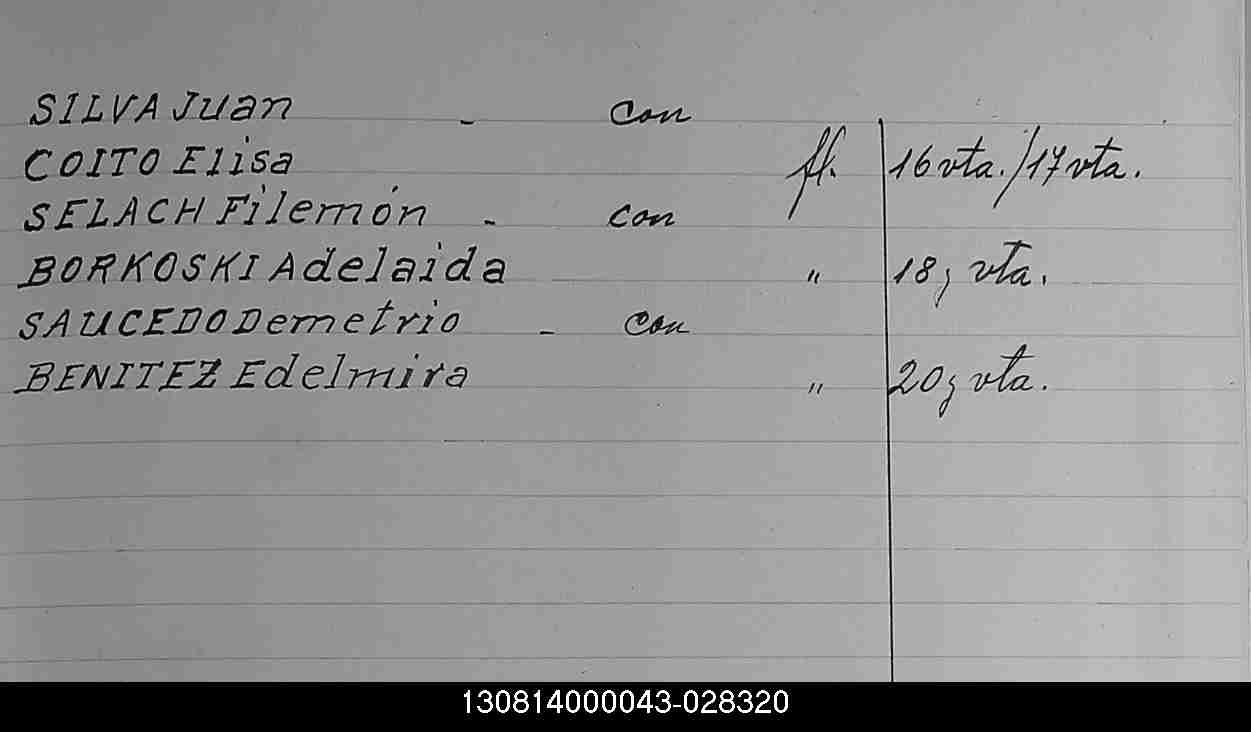 SILVA Juan - con
COITO Elisa fl. 16 vta./17 vta.
SELACH Filemón - con
BORKOSKI Adelaida " 18; vta.
SAUCEDO Demetrio - con
BENITEZ Edelmira " 20; vta.
130814000043-028320